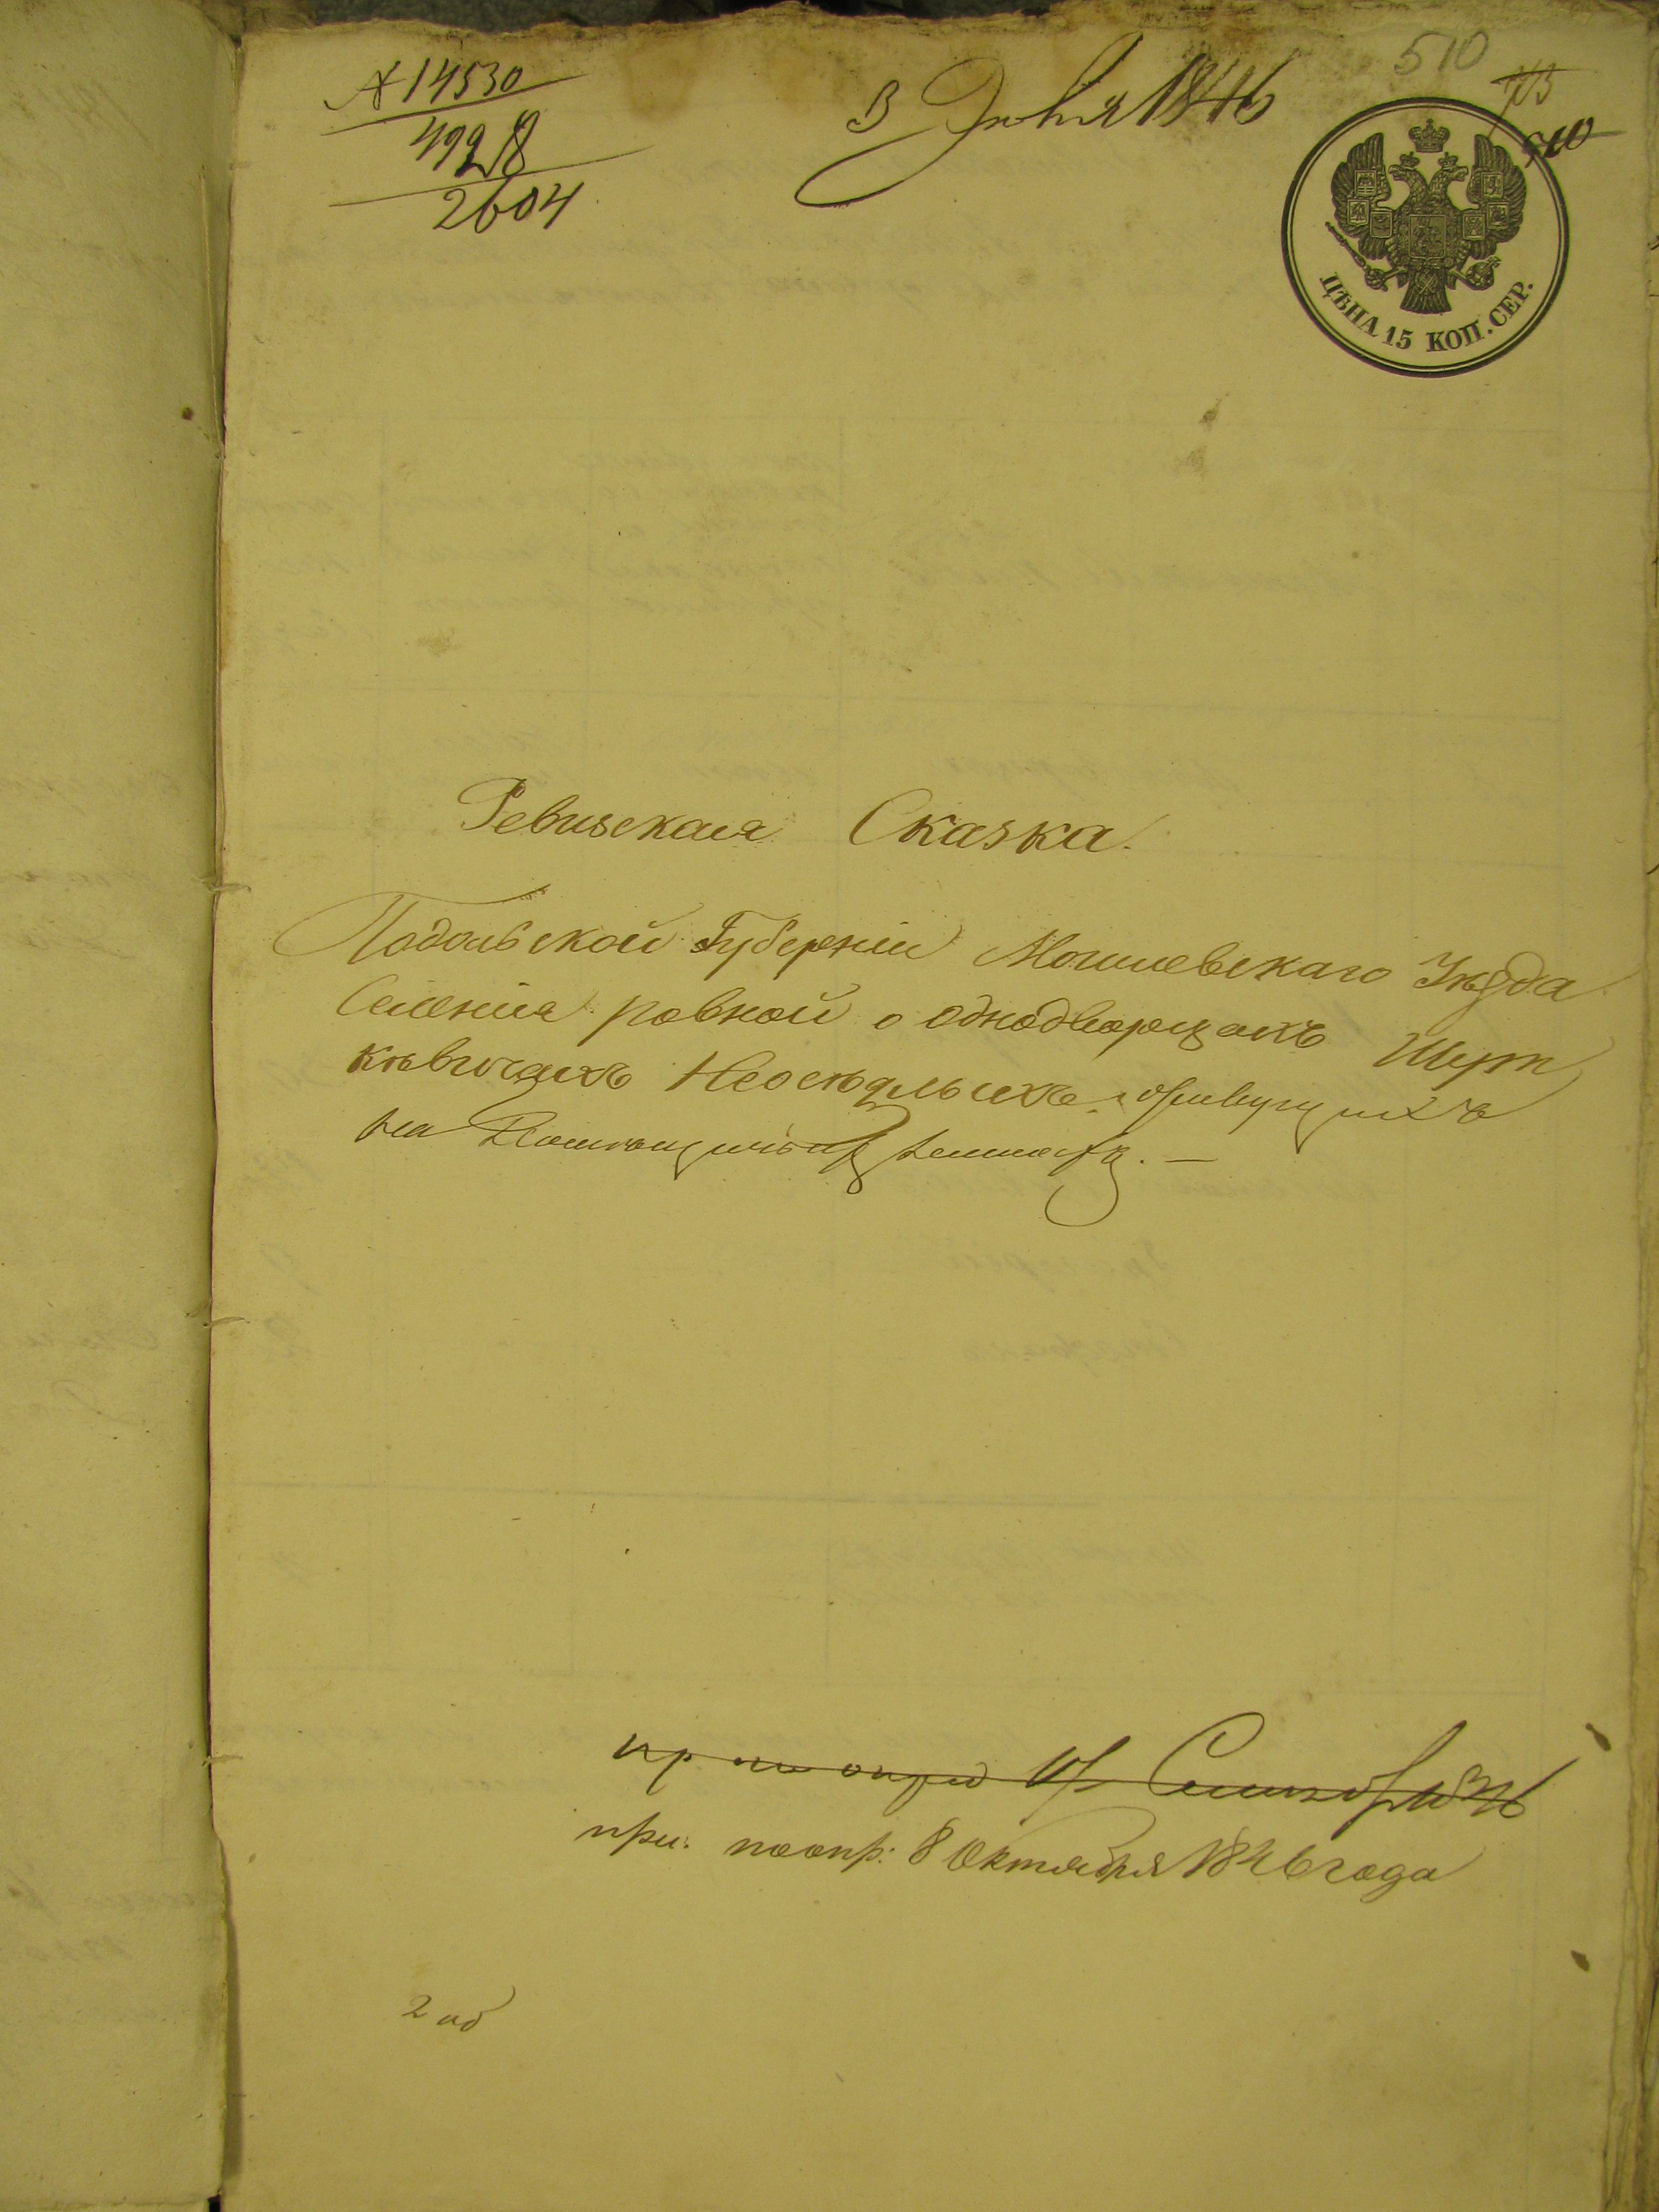 № 14530
4998
2604
3 Июня 1846
510
510
ЦѢНА 15 КОП. СЕР.
Ревизская Сказка.
Подольской Губерніи Могилевскаго Уѣзда
Селенія ровной о однодворцахъ Шут
кѣвичахъ Неосѣдлыхъ живущихъ
на Помѣщичьей землѣ. —
пр по опред
при: по опр: 8 Октября 1846 года
2 об